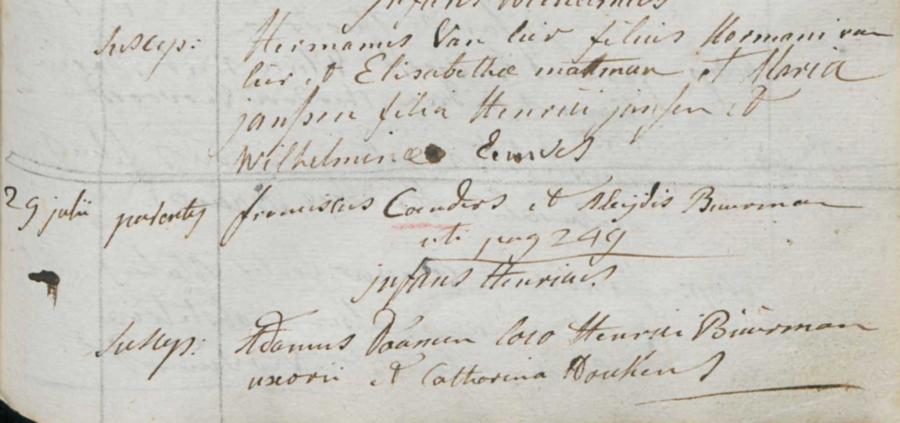 infans Wilhelmus
Suscep: Hermanus Van lier filius Hermani van
lier et Elisabethæ mattman et Maria
janssen filia Henrici janssen et
Wilhelminæ
29 julii parentes franciscus Coenders et Aleijdis Buurman
uti pag 249
infans Henricus.
Suscep: Adamus Daamen loco Henrici Buurman
uxorii et Catharina Doukens